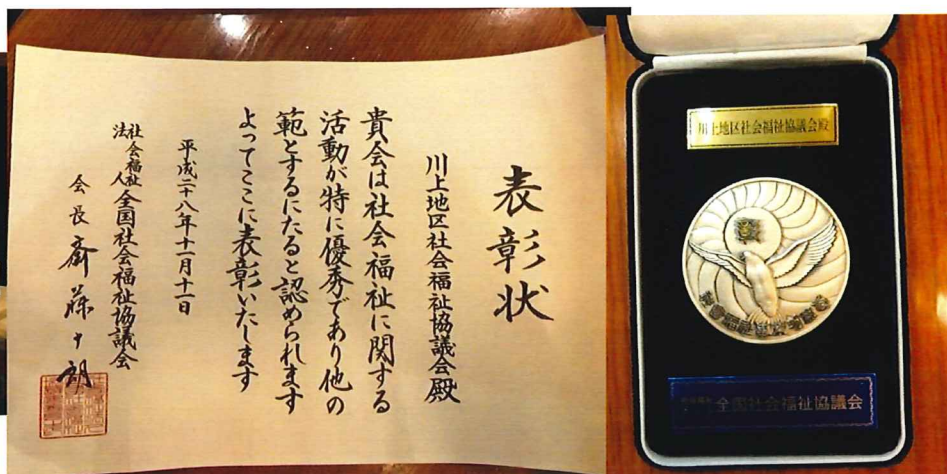 表彰状
川上地区社会福祉協議会殿
貴会は社会福祉に関する
活動が特に優秀であり他の
範とするにたると認められます
よってここに表彰いたします
平成二十八年十一月十一日
社会福祉法人 全国社会福祉協議会
会長 斎藤十朗
川上地区社会福祉協議会殿
全国社会福祉協議会